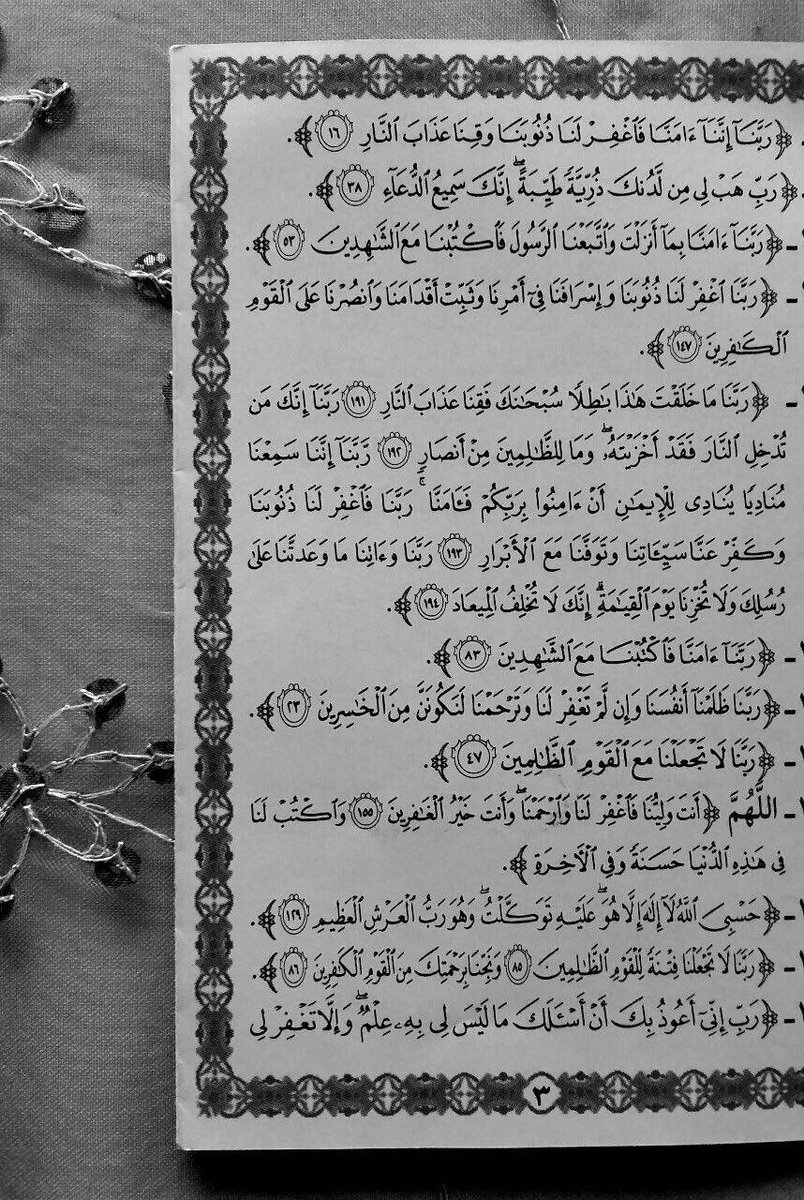 ﴿ رَبَّنَآ إِنَّنَآ ءَامَنَّا فَٱغْفِرْ لَنَا ذُنُوبَنَا وَقِنَا عَذَابَ ٱلنَّارِ ١٦ ﴾.
﴿ رَبِّ هَبْ لِى مِن لَّدُنكَ ذُرِّيَّةً طَيِّبَةً ۖ إِنَّكَ سَمِيعُ ٱلدُّعَآءِ ٣٨ ﴾.
- ﴿ رَبَّنَآ ءَامَنَّا بِمَآ أَنزَلْتَ وَٱتَّبَعْنَا ٱلرَّسُولَ فَٱكْتُبْنَا مَعَ ٱلشَّـٰهِدِينَ ٥٣ ﴾.
- ﴿ رَبَّنَا ٱغْفِرْ لَنَا ذُنُوبَنَا وَإِسْرَافَنَا فِىٓ أَمْرِنَا وَثَبِّتْ أَقْدَامَنَا وَٱنصُرْنَا عَلَى ٱلْقَوْمِ
ٱلْكَـٰفِرِينَ ١٤٧ ﴾.
- ﴿ رَبَّنَا مَا خَلَقْتَ هَـٰذَا بَـٰطِلًا سُبْحَـٰنَكَ فَقِنَا عَذَابَ ٱلنَّارِ ١٩١ رَبَّنَآ إِنَّكَ مَن
تُدْخِلِ ٱلنَّارَ فَقَدْ أَخْزَيْتَهُۥ ۖ وَمَا لِلظَّـٰلِمِينَ مِنْ أَنصَارٍ ١٩٢ رَّبَّنَآ إِنَّنَا سَمِعْنَا
مُنَادِيًا يُنَادِى لِلْإِيمَـٰنِ أَنْ ءَامِنُوا۟ بِرَبِّكُمْ فَـَٔامَنَّا ۚ رَبَّنَا فَٱغْفِرْ لَنَا ذُنُوبَنَا
وَكَفِّرْ عَنَّا سَيِّـَٔاتِنَا وَتَوَفَّنَا مَعَ ٱلْأَبْرَارِ ١٩٣ رَبَّنَا وَءَاتِنَا مَا وَعَدتَّنَا عَلَىٰ
رُسُلِكَ وَلَا تُخْزِنَا يَوْمَ ٱلْقِيَـٰمَةِ ۗ إِنَّكَ لَا تُخْلِفُ ٱلْمِيعَادَ ١٩٤ ﴾.
- ﴿ رَبَّنَآ ءَامَنَّا فَٱكْتُبْنَا مَعَ ٱلشَّـٰهِدِينَ ٨٣ ﴾.
- ﴿ رَبَّنَا ظَلَمْنَآ أَنفُسَنَا وَإِن لَّمْ تَغْفِرْ لَنَا وَتَرْحَمْنَا لَنَكُونَنَّ مِنَ ٱلْخَـٰسِرِينَ ٢٣ ﴾.
- ﴿ رَبَّنَا لَا تَجْعَلْنَا مَعَ ٱلْقَوْمِ ٱلظَّـٰلِمِينَ ٤٧ ﴾.
- اللَّهُمَّ ﴿ أَنتَ وَلِيُّنَا فَٱغْفِرْ لَنَا وَٱرْحَمْنَا ۖ وَأَنتَ خَيْرُ ٱلْغَـٰفِرِينَ ١٥٥ وَٱكْتُبْ لَنَا
فِى هَـٰذِهِ ٱلدُّنْيَا حَسَنَةً وَفِى ٱلْـَٔاخِرَةِ ﴾.
- ﴿ حَسْبِىَ ٱللَّهُ لَآ إِلَـٰهَ إِلَّا هُوَ ۖ عَلَيْهِ تَوَكَّلْتُ ۖ وَهُوَ رَبُّ ٱلْعَرْشِ ٱلْعَظِيمِ ١٢٩ ﴾.
- ﴿ رَبَّنَا لَا تَجْعَلْنَا فِتْنَةً لِّلْقَوْمِ ٱلظَّـٰلِمِينَ ٨٥ وَنَجِّنَا بِرَحْمَتِكَ مِنَ ٱلْقَوْمِ ٱلْكَـٰفِرِينَ ٨٦ ﴾.
- ﴿ رَبِّ إِنِّىٓ أَعُوذُ بِكَ أَنْ أَسْـَٔلَكَ مَا لَيْسَ لِى بِهِۦ عِلْمٌ ۖ وَإِلَّا تَغْفِرْ لِى
٣